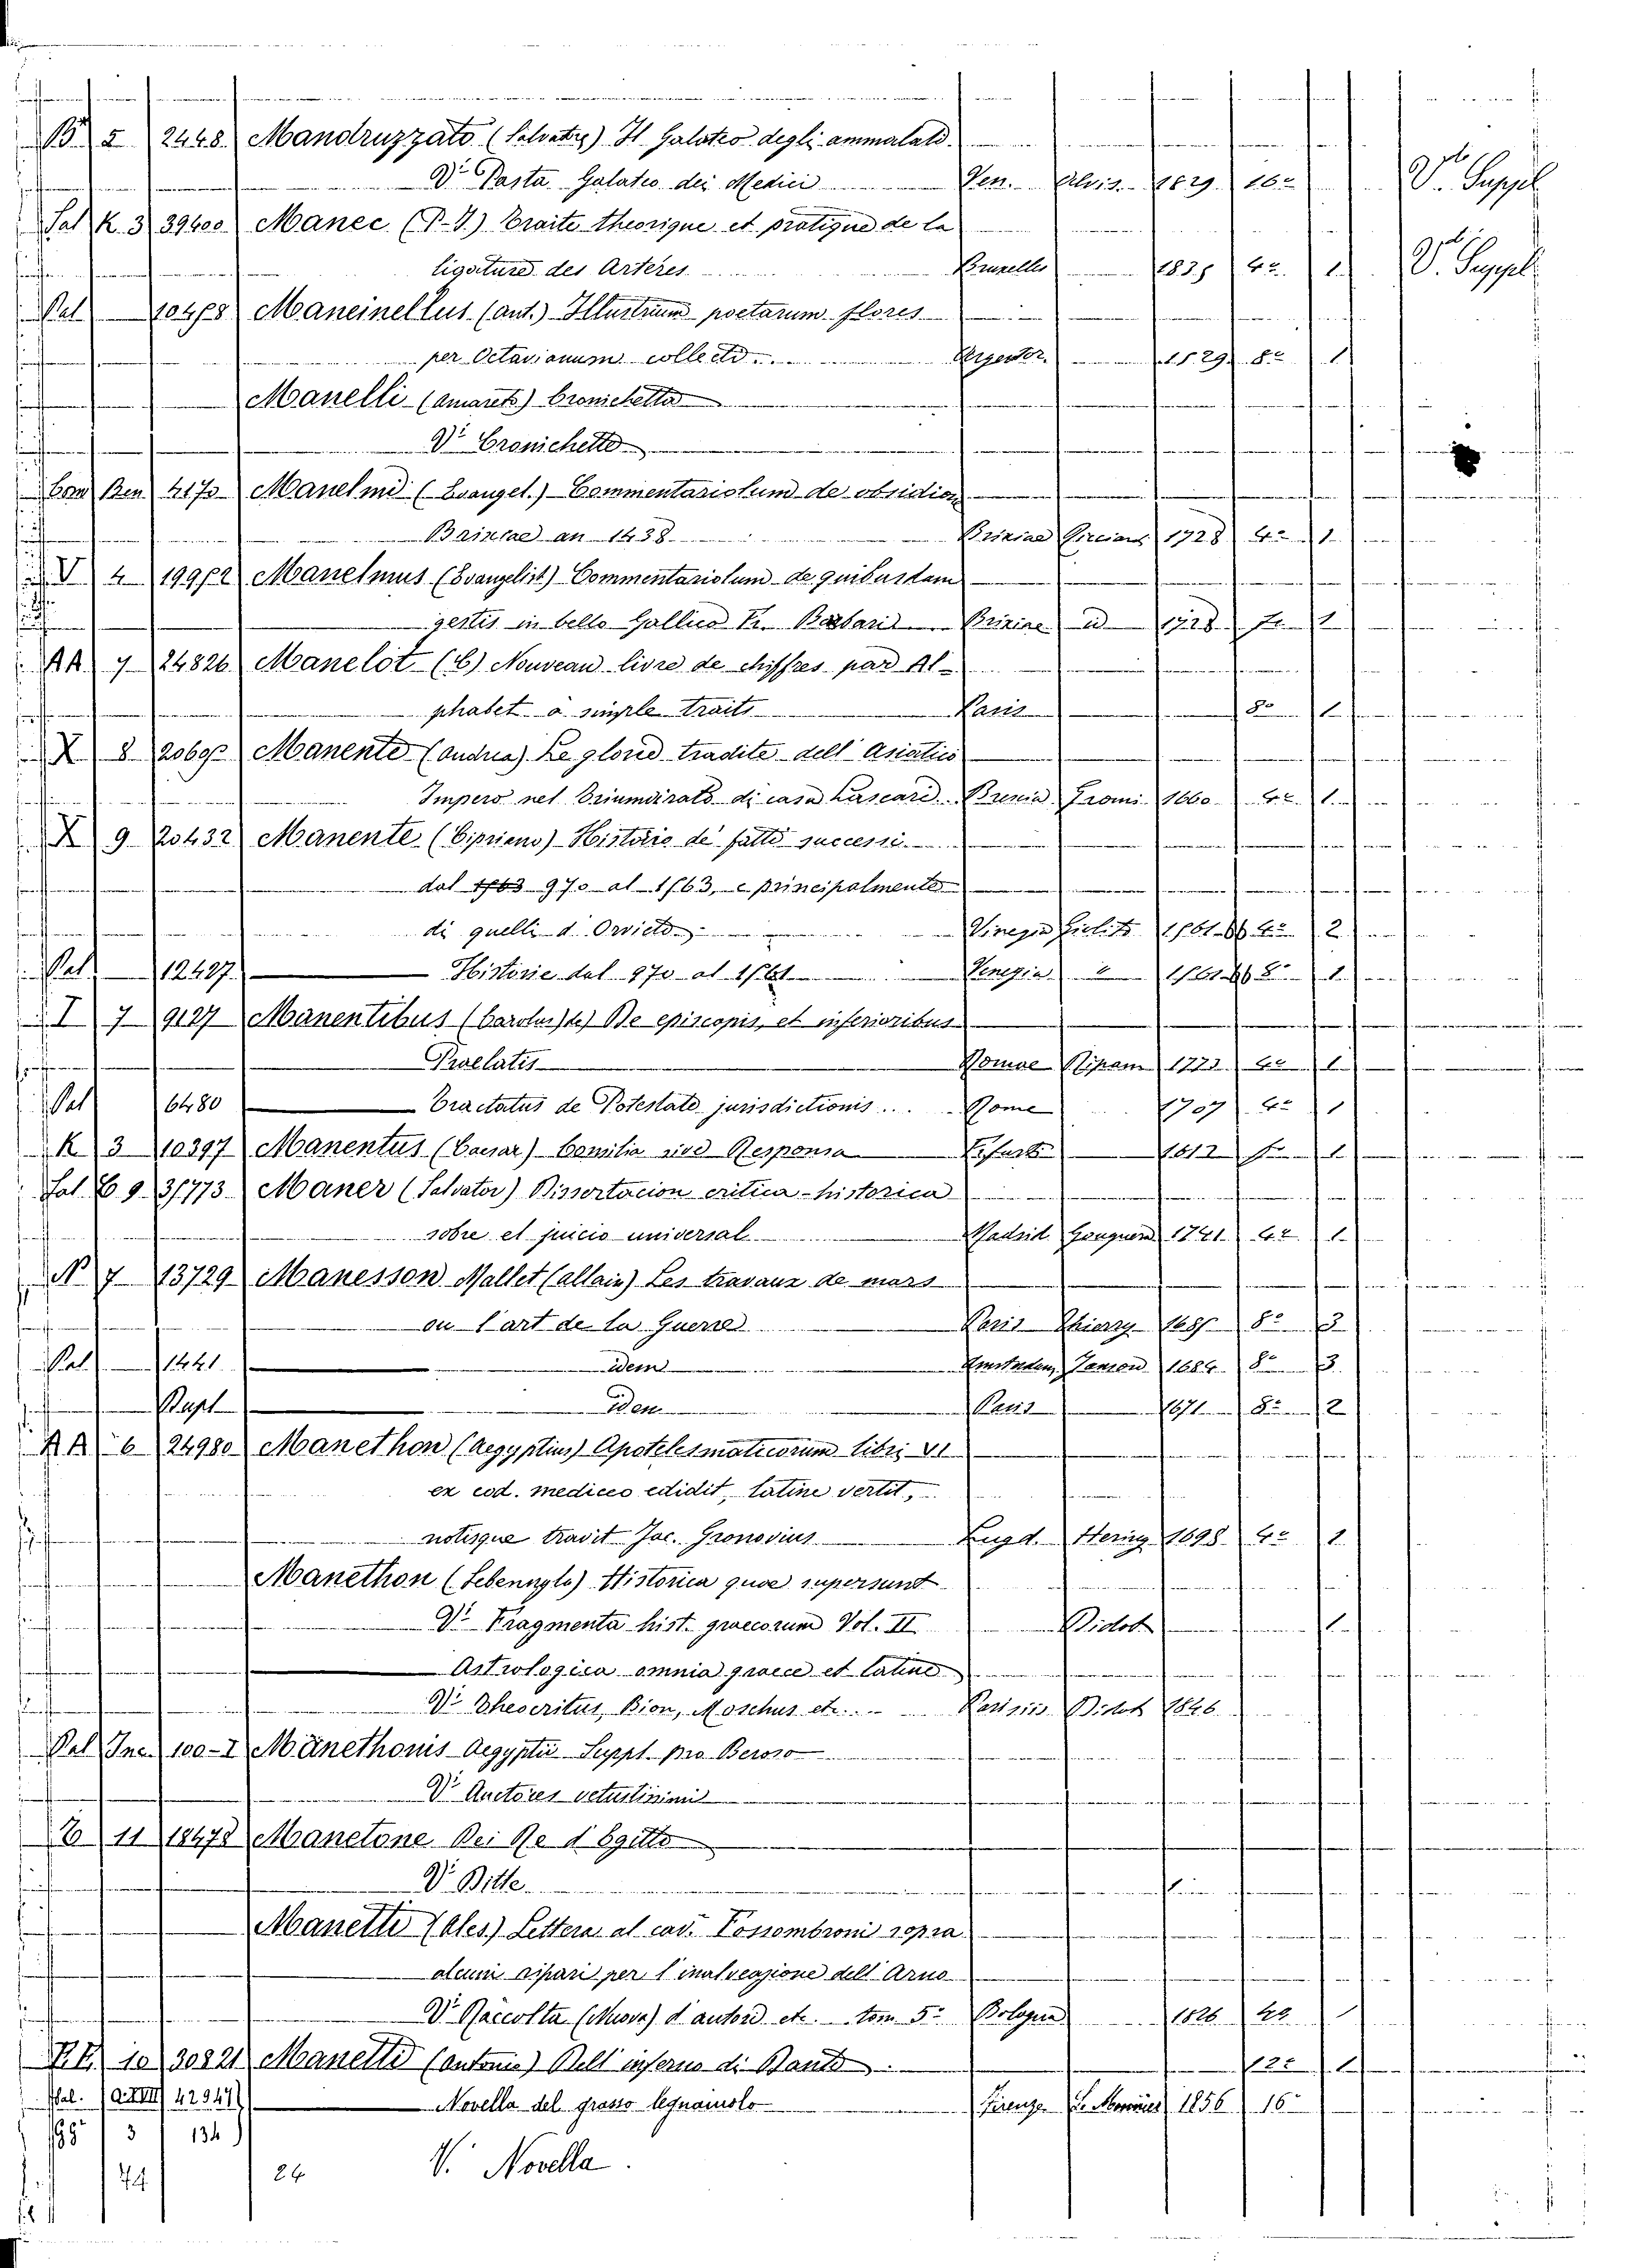 B 5 2448 Mandruzzato (Salvatre) Il Galateo degli ammalati
Vi Pasta Galateo dei Medici Ven. Alvis. 1829 16º V. Suppl
Sal K. 3 39400 Manec (P. J.) Traite theorique et pratique de la
ligature des Arteres Bruxelles 1835 4º 1 V. Suppl
Pal 10458 Mancinellus (ant.) Illustrium poetarum flores
per Octavianum collecti Argentor. 1529 8º 1
Manelli (amaret.) Cronichetta
Vi Cronichette
Com Ben 4173 Manelmi (Evangel.) Commentariolum de obsidion
Brixiae an 1438 Brixiae 1728 4º 1
V 4 Manelmus (Evangelist) Commentariolum de quibusdam
gestis in bello Gallico Fr. Barbari Brixiae id 1728 1
AA 7 24826 Manelot (C) Nouveau livre de chiffres par Al-
phabet a simple traits Paris 8º 1
X 8 Manente (andrea) Le glorie tradite dell' Asiatico
Impero nel Triumvirato di casa Lascari Gromi 1660 4º 1
X 9 20432 Manente (Cipriano) Historie de fatti successi
dal 970 al 1563, e principalmente
di quelli d' Orvieto Vinegia Giolito 1561.66 4º 2
Pal 12427 Historie dal 970 al 1561 Venezia 1561.66 8º 1
I 7 9127 Manentibus (Carolus de) De episcopis, et inferioribus
Praelatis Romae 1773 4º 1
Pal 6480 Tractatus de Potestate jurisdictionis .... Rome 1707 4º 1
K 3 10397 Manentus (Caesar) Consilia sive Responsa 1612 1
Sal. C 9 31773 Maner (Salvator) Dissertacion critica-historica
sobre el juicio universal Madrid 1741 4º 1
N 7 13729 Manesson Mallet (allain) Les travaux de mars
ou l'art de la Guerre Paris Thierry 8º 3
Pal 1441 idem Amsterdam Janson 1684 8º 3
Rapt idem Paris 1671 8º 2
AA 6 24980 Manethon (Aegyptius) Apotelesmaticorum libri VI
ex cod. mediceo edidit, latine vertit,
notisque Jac. Gronovius Lugd. Hering 1698 4º 1
Manethon (Sebennyta) Historica quae supersunt
Vi Fragmenta hist. graecorum Vol. II Didot 1
Astrologica omnia graece et latine
Vi Theocritus, Bion, Moschus etc. Parisiis Didot 1846
Pal Inc. 100-I Manethonis Aegyptii Suppl. pro Beroso
Vi Auctores vetustissimi
C 11 18478 Manetone Dei Re d' Egitto
V Ditte
Manetti (Ales.) Lettera al cav. Fossombroni sopra
alcuni ripari per l'inalveazione dell' Arno
Vi Raccolta (Nuova) d'autori etc. tom. 5º Bologna 1826 4º 1
10 30821 Manetti (Antonio) Dell' inferno di Dante 12º 1
Pal. Q.XVIII 42947 Novella del grasso legnaiuolo Firenze Le Monnier 1856 16º
3 134
V. Novella.
74 24